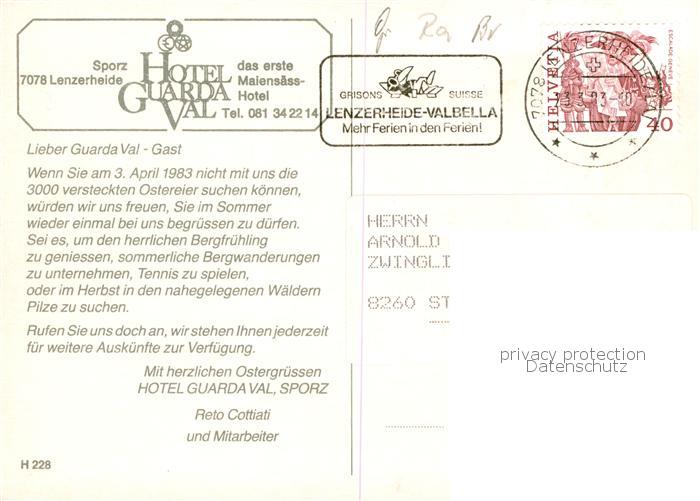 Sporz
7078 Lenzerheide
HOTEL
GUARDA
VAL
das erste
Maiensäss-
Hotel
Tel. 081 34 22 14
GRISONS SUISSE
LENZERHEIDE-VALBELLA
Mehr Ferien in den Ferien!
7078 LENZERHEIDE
HELVETIA
ESCALADE GENÈVE
40
Lieber Guarda Val - Gast
Wenn Sie am 3. April 1983 nicht mit uns die
3000 versteckten Ostereier suchen können,
würden wir uns freuen, Sie im Sommer
wieder einmal bei uns begrüssen zu dürfen.
Sei es, um den herrlichen Bergfrühling
zu geniessen, sommerliche Bergwanderungen
zu unternehmen, Tennis zu spielen,
oder im Herbst in den nahegelegenen Wäldern
Pilze zu suchen.
Rufen Sie uns doch an, wir stehen Ihnen jederzeit
für weitere Auskünfte zur Verfügung.
Mit herzlichen Ostergrüssen
HOTEL GUARDA VAL, SPORZ
Reto Cottiati
und Mitarbeiter
H 228
HERRN
ARNOLD
ZWINGLI
8260 ST
privacy protection
Datenschutz